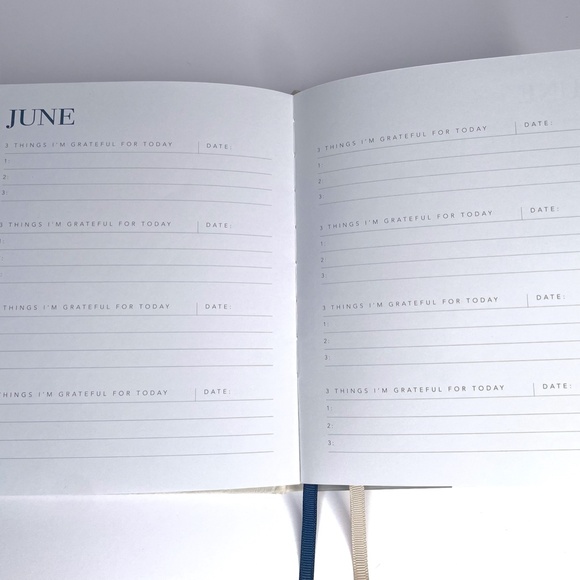 JUNE
3 THINGS I'M GRATEFUL FOR TODAY DATE:
1:
2:
3:
3 THINGS I'M GRATEFUL FOR TODAY DATE:
3 THINGS I'M GRATEFUL FOR TODAY DATE:
THINGS I'M GRATEFUL FOR TODAY DATE:
3 THINGS I'M GRATEFUL FOR TODAY DATE:
1:
2:
3:
3 THINGS I'M GRATEFUL FOR TODAY DATE:
1:
2:
3:
3 THINGS I'M GRATEFUL FOR TODAY DATE:
1:
2:
3:
3 THINGS I'M GRATEFUL FOR TODAY DATE:
1:
2:
3: